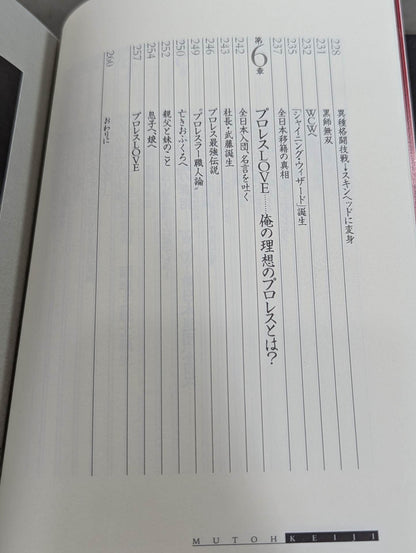 228 異種格闘技戦→スキンヘッドに変身
231 黒師無双
232 WCWへ
235 「シャイニング・ウィザード」誕生
237 全日本移籍の真相
第6章 プロレスLOVE……俺の理想のプロレスとは？
242 全日本入団、名言を吐く
243 社長・武藤誕生
246 プロレス最強伝説
249 “プロレスラー職人論”
250 亡きおふくろへ
252 親父と妹のこと
254 息子へ、娘へ
257 プロレスLOVE
260 おわりに
MUTOH KEIJI